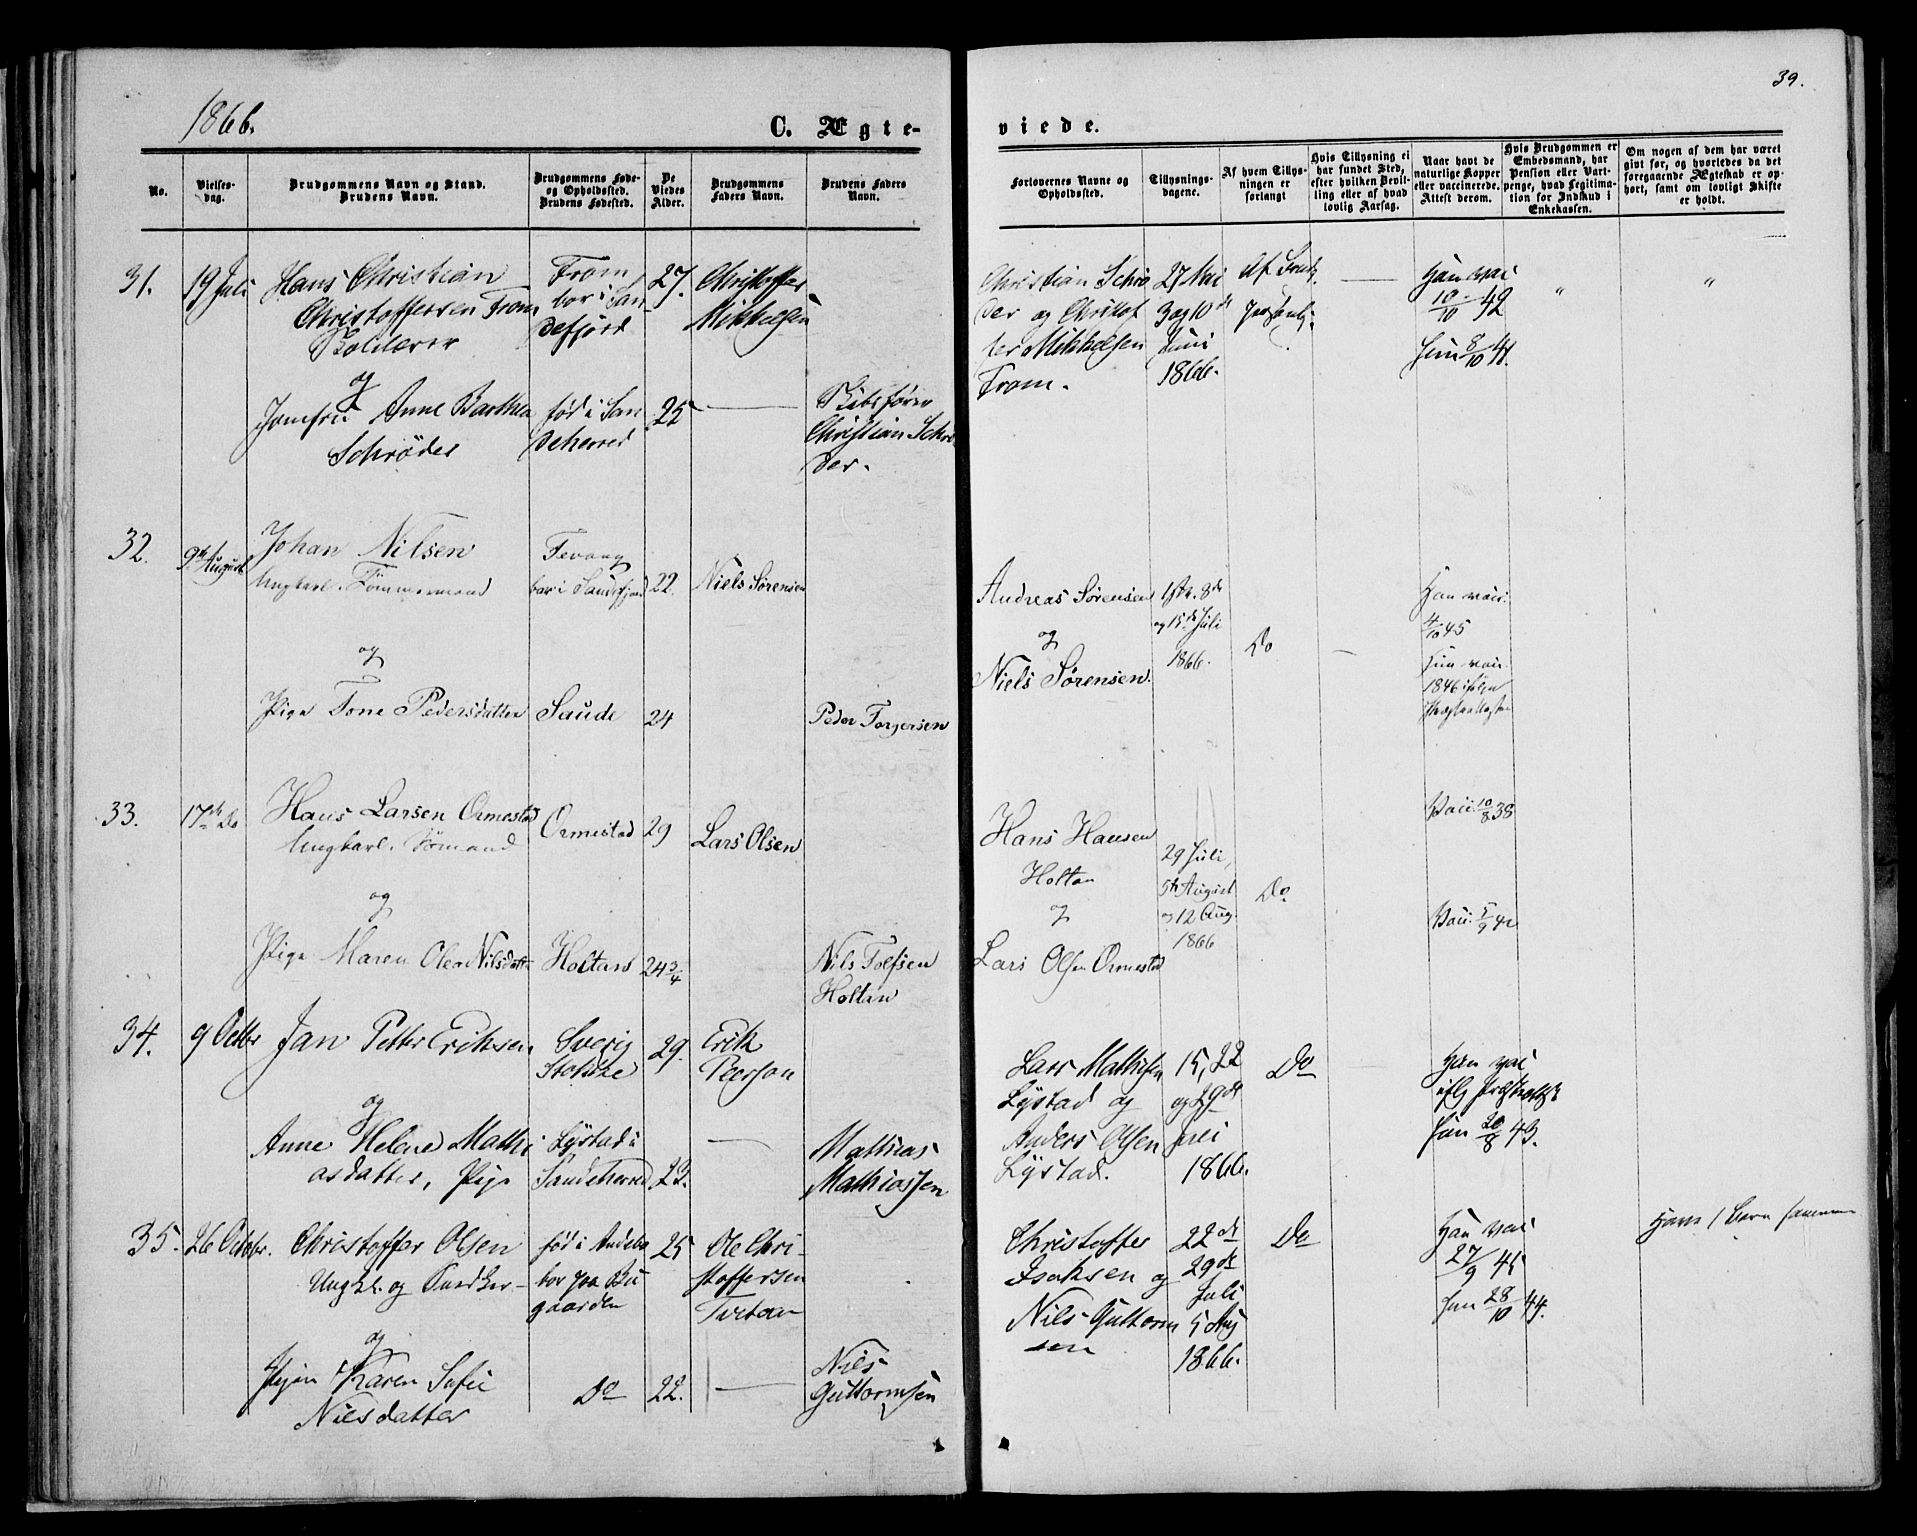 39.
1866.
C. Ægte-
viede.
No.
Vielses-
dag.
Brudgommens Navn og Stand.
Brudens Navn.
Brudgommens Føde-
og Opholdssted.
Brudens Fødested.
De
Viedes
Alder.
Brudgommens
Faders Navn.
Brudens Faders
Navn.
Forlovernes Navne og
Opholdssted.
Tillysnings-
dagene.
Af hvem Tillys-
ningen er
forlangt
Hvis Tillysning ei
har fundet Sted,
efter hvilken Bevil-
ling eller af hvad
lovlig Aarsag.
Naar havt de
naturlige Kopper
eller vaccinerede.
Attest derom.
Hvis Brudgommen er
Embedsmand, har
Pension eller Vart-
penge, hvad Legitima-
tion for Indskud i
Enkekassen.
Om nogen af dem har været
givt før, og hvorledes da det
foregaaende Ægteskab er op-
hørt, samt om lovligt Skifte
er holdt.
31.
19 Juli
Hans Christian
Christoffersen Fram
og
Jomfru Anne Barthea
Schrøder
Fram
bor i San
defjord
fød i San
deherred
27.
25
Christoffer
Mikkelsen
Skibsfører
Christian Schrø
der.
Christian Schrø
der og Christof
fer Mikkelsen
Fram.
27 Mai
3 og 10de
Juni
1866.
Han vac
10/10 42
Hun 8/10 41.
32.
9de August
Johan Nilsen
Ungkarl. Tømmermand
og
Pige Tone Pedersdatter
Tevang
bor i Sandefjord
Saude
22.
24
Niels Sørensen
Peder Torgersen
Andreas Sørensen
og
Niels Sørensen.
1ste. 8de
og 15de Juli
1866.
Do
Han vac.
4/10 45
Hun vac
1846 ifølge
33.
17de Do
Hans Larsen Ormestad
Ungkarl. Sømand
og
Pige Maren Olea Nilsdatt
Ormestad
Holtan
29
24 3/4
Lars Olsen
Nils Tolfsen
Holtan
Hans Hansen
Holtan
og
Lars Olsen Ormestad
29 Juli,
5th August
og 12 Aug.
1866
Do
Vacc. 10/8 38
Vacc. 5/9 42
34.
9 Octbr
Jan Petter Eriksen
og
Anne Helene Mathi
asdatter, Pige
Sverig
Lystad i
Sandeherred
29.
23.
Erik
Peerson
Mathias
Mathiassen
Lars Mathisen
Lystad og
Anders Olsen
Lystad.
15, 22
og 29de
Juli
1866.
Do
Han vac
Hun 20/8 43.
35.
26 Octobr.
Christoffer Olsen
Ungk. og
og
Pigen Karen Sofie
Nilsdatter
fød i Andebu
bor paa Bu
gaarden
Do
25
22.
Ole Chri-
stoffersen
Nils
Guttormsen
Christoffer
Isaksen og
Nils Guttorm
sen
22de
29de
Juli
5 Aug
1866.
Do
Han vac
27/9 41
Hun 28/10 44.
Have 1 Barn sammen